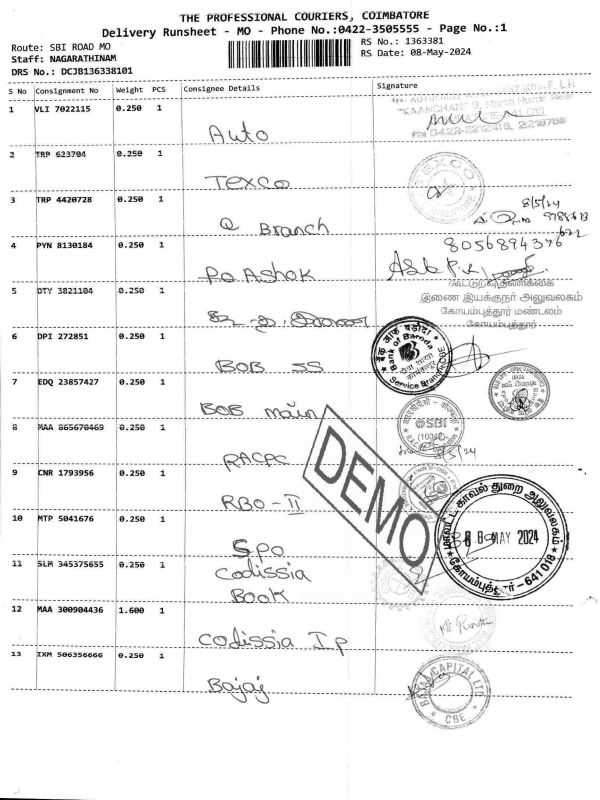 THE PROFESSIONAL COURIERS, COIMBATORE
Delivery Runsheet - MO - Phone No.:0422-3505555 - Page No.:1
Route: SBI ROAD MO
RS No.: 1363381
Staff: NAGARATHINAM
RS Date: 08-May-2024
DRS No.: DCJB136338101
S No Consignment No Weight PCS Consignee Details Signature
1 VLI 7022115 0.250 1
Auto
2 TRP 623704 0.250 1
TEXCO
3 TRP 4420728 0.250 1
8/5/24
Q Branch
4 PYN 8130184 0.250 1
8056894376
Po Ashok
5 DTY 3821104 0.250 1
இணை இயக்குநர் அலுவலகம்
கோயம்புத்தூர் மண்டலம்
கோயம்புத்தூர்
6 DPI 272851 0.250 1
Bank of Baroda
Service Branch CBE
BOB SS
7 EDQ 23857427 0.250 1
BOB main
8 MAA 865670469 0.250 1
SBI
RACPC
9 CNR 1793956 0.250 1
RBO-II
DEMO
10 MTP 5041676 0.250 1
மாவட்ட காவல் துறை அலுவலகம்
MAY 2024
கோயம்புத்தூர் - 641 018
SPO
11 SLM 345375655 0.250 1
Codissia
Book
12 MAA 300904436 1.600 1
Codissia IP
13 IXM 506356666 0.250 1
Bajaj
BAJAJ CAPITAL LTD
CBE